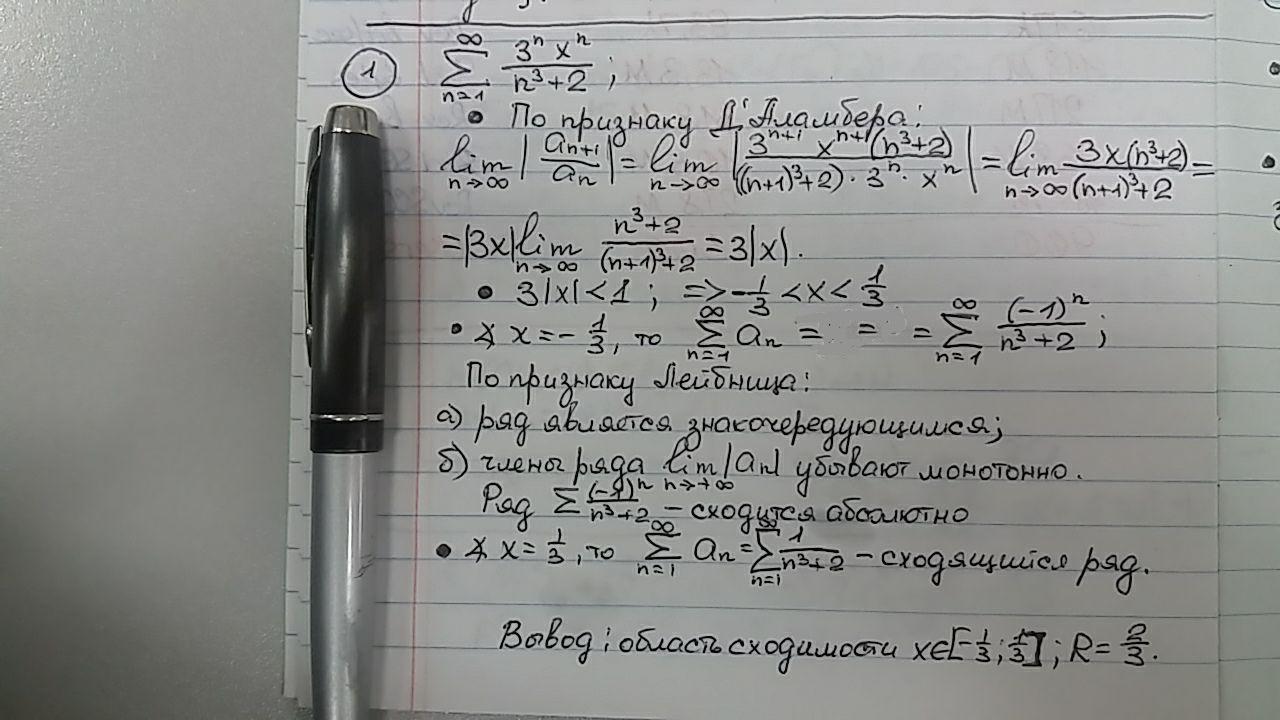 1 ∑_{n=1}^{∞} \frac{3^n x^n}{n^3+2} ;
• По признаку Д'Аламбера:
lim_{n→∞} |\frac{a_{n+1}}{a_n}| = lim_{n→∞} |\frac{3^{n+1} x^{n+1} (n^3+2)}{((n+1)^3+2) · 3^n · x^n}| = lim_{n→∞} \frac{3x(n^3+2)}{(n+1)^3+2} =
= |3x| lim_{n→∞} \frac{n^3+2}{(n+1)^3+2} = 3|x|.
• 3|x| < 1 ; => -\frac{1}{3} < x < \frac{1}{3}
• ∢ x = -\frac{1}{3}, то ∑_{n=1}^{∞} a_n = = = ∑_{n=1}^{∞} \frac{(-1)^n}{n^3+2} ;
По признаку Лейбница:
а) ряд является знакочередующимся;
б) члены ряда lim_{n→+∞} |a_n| убывают монотонно.
Ряд ∑ \frac{(-1)^n}{n^3+2} - сходится абсолютно
• ∢ x = \frac{1}{3}, то ∑_{n=1}^{∞} a_n = ∑_{n=1}^{∞} \frac{1}{n^3+2} - сходящийся ряд.
Вывод: область сходимости x∈[-\frac{1}{3}; \frac{1}{3}] ; R = \frac{2}{3}.